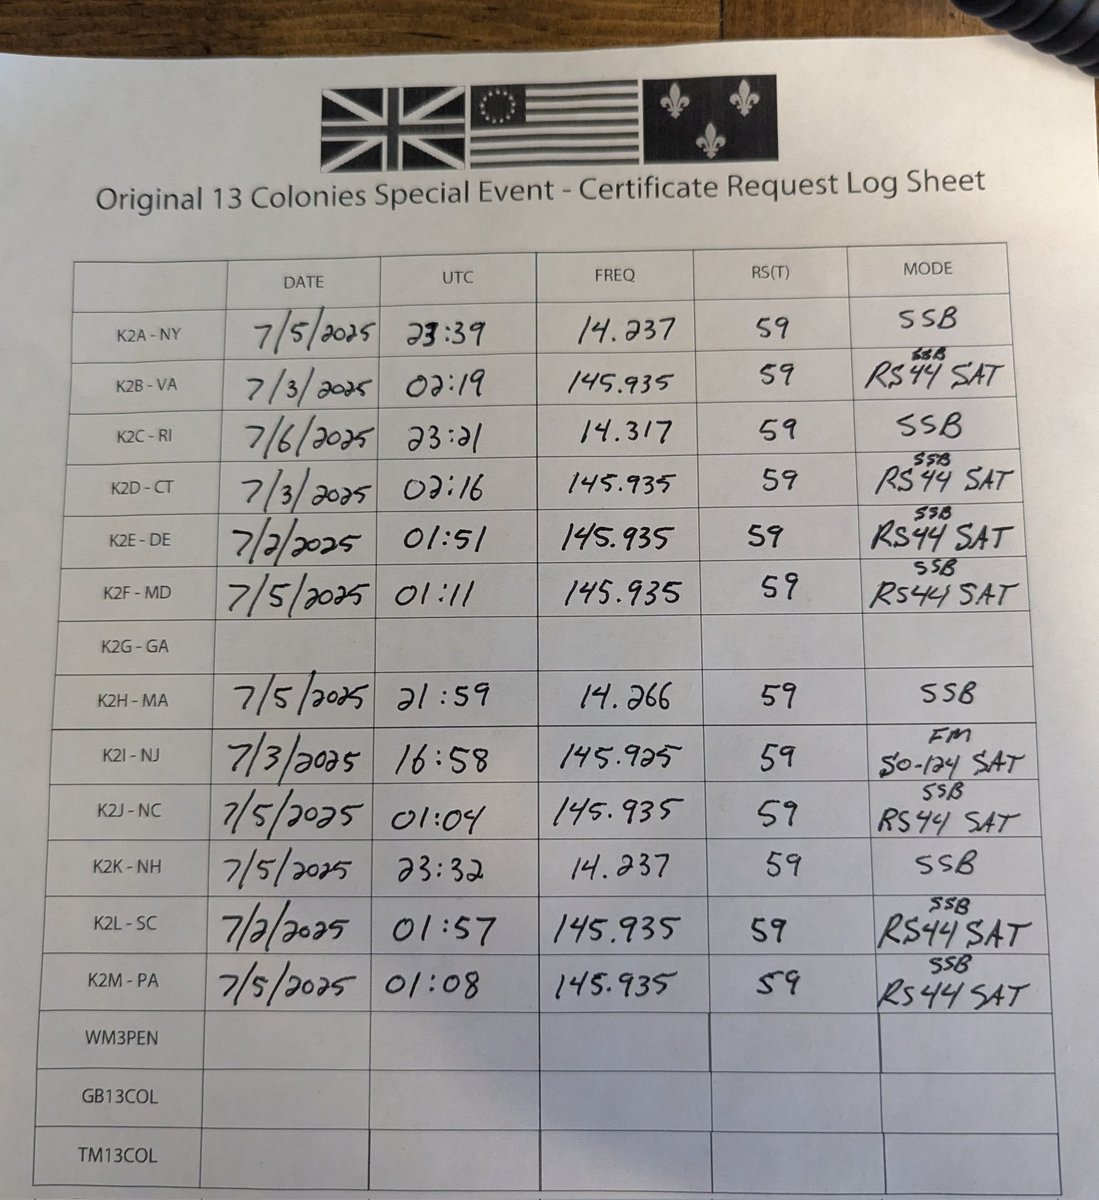 Original 13 Colonies Special Event - Certificate Request Log Sheet
DATE UTC FREQ RS(T) MODE
K2A - NY 7/5/2025 23:39 14.237 59 SSB
K2B - VA 7/3/2025 02:19 145.935 59 SSB RS44 SAT
K2C - RI 7/6/2025 23:21 14.317 59 SSB
K2D - CT 7/3/2025 02:16 145.935 59 SSB RS44 SAT
K2E - DE 7/2/2025 01:51 145.935 59 SSB RS44 SAT
K2F - MD 7/5/2025 01:11 145.935 59 SSB RS44 SAT
K2G - GA
K2H - MA 7/5/2025 21:59 14.266 59 SSB
K2I - NJ 7/3/2025 16:58 145.925 59 FM SO-124 SAT
K2J - NC 7/5/2025 01:04 145.935 59 SSB RS44 SAT
K2K - NH 7/5/2025 23:32 14.237 59 SSB
K2L - SC 7/2/2025 01:57 145.935 59 SSB RS44 SAT
K2M - PA 7/5/2025 01:08 145.935 59 SSB RS44 SAT
WM3PEN
GB13COL
TM13COL